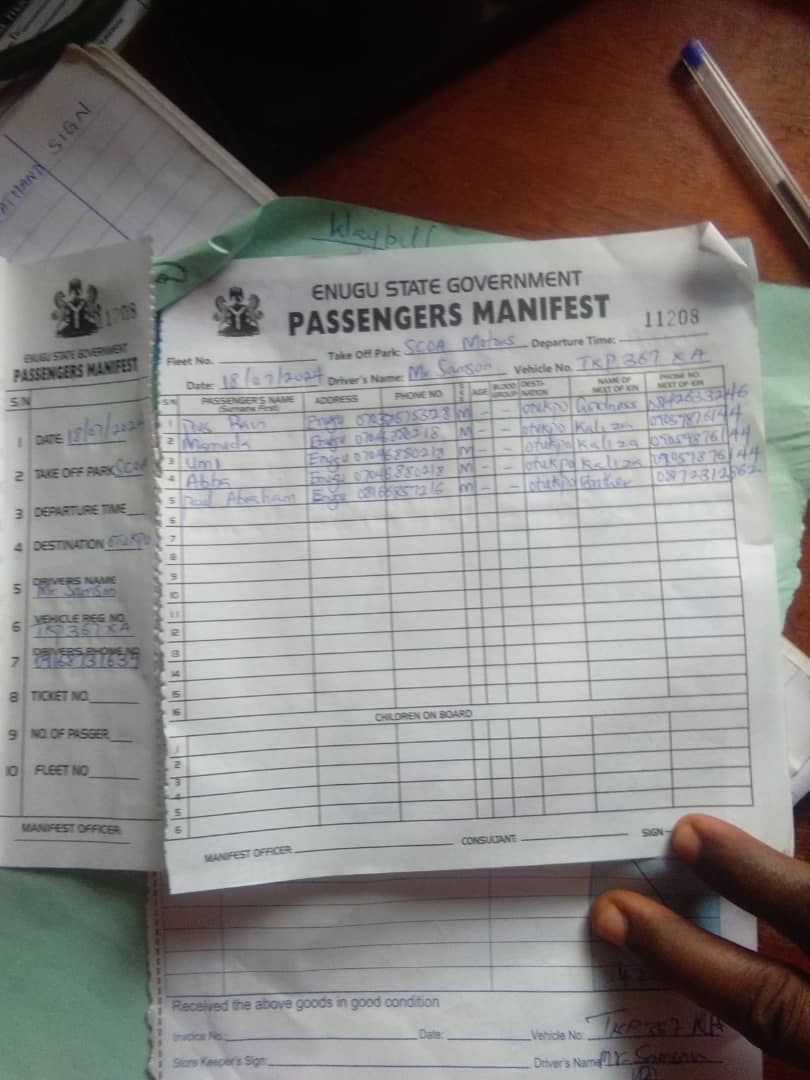 SIGN
Waybill
11208
ENUGU STATE GOVERNMENT
PASSENGERS MANIFEST
S/N
1 DATE 18/07/2024
2 TAKE OFF PARK SCOA
3 DEPARTURE TIME
4 DESTINATION OTUKPO
5 DRIVERS NAME
Mr Samson
6 VEHICLE REG. NO.
TKP 367 XA
7 DRIVERS PHONE NO
8 TICKET NO.
9 NO. OF PASGER
10 FLEET NO
MANIFEST OFFICER
ENUGU STATE GOVERNMENT
PASSENGERS MANIFEST 11208
Fleet No. Take Off Park: SCOA Motors Departure Time:
Date: 18/07/2024 Driver's Name: Mr Samson Vehicle No. TKP 367 XA
S/N PASSENGER'S NAME (Surname First) ADDRESS PHONE NO. SEX AGE BLOOD GROUP DESTI-NATION NAME OF NEXT OF KIN PHONE NO. NEXT OF KIN
1 Enugu M - - otukpo
2 Mamuda Enugu M - - otukpo Kaliza 09059876144
3 Umi Enugu 07046880218 M - - otukpo Kaliza 09059876144
4 Abba Enugu 07046880218 M - - otukpo Kaliza 09059876144
5 Abraham Enugu M - - otukpo Brother
6
7
8
9
10
11
12
13
14
15
16
CHILDREN ON BOARD
1
2
3
4
5
6
MANIFEST OFFICER: CONSULTANT: SIGN
Received the above goods in good condition
Invoice No: Date: Vehicle No: TKP 367 XA
Store Keeper's Sign: Driver's Name Mr. Samson